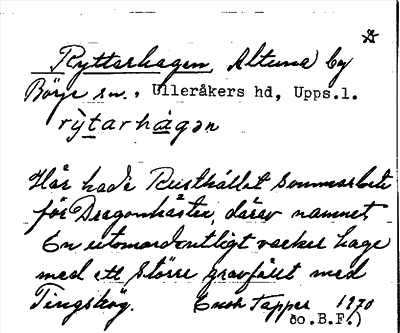 Ryttarhagen, Altuna by
Börje sn., Ulleråkers hd, Upps.l.
rỳtarhágən
Här hade Rusthållet sommarbete
för Dragonhästar, därav namnet.
En utomordentligt vacker hage
med ett större gravfält med
Tingshög. Erik Tapper 1970
(o.B.F.)